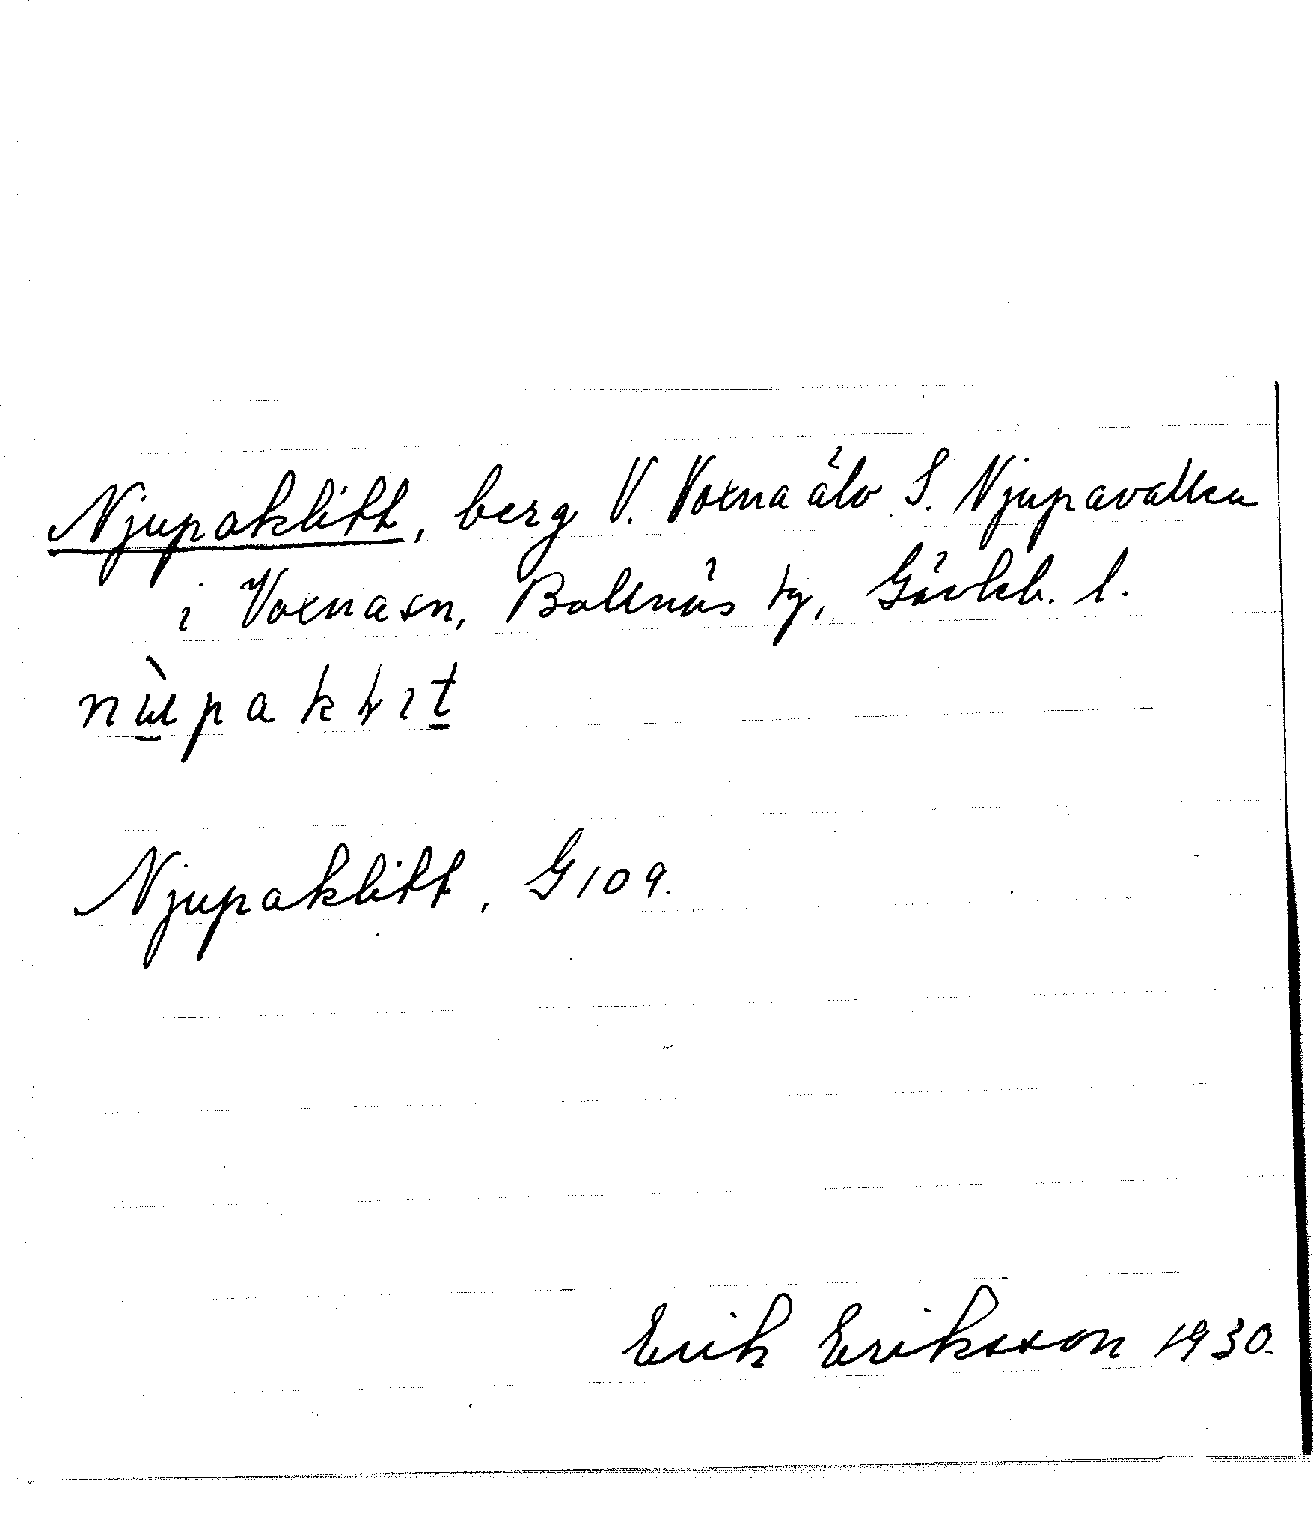 Njupaklitt, berg V. Voxna älv S. Njupavallen
i Voxna sn, Bollnäs tg, Gävleb. l.
Njupaklitt, G 109.
Erik Eriksson 1930.